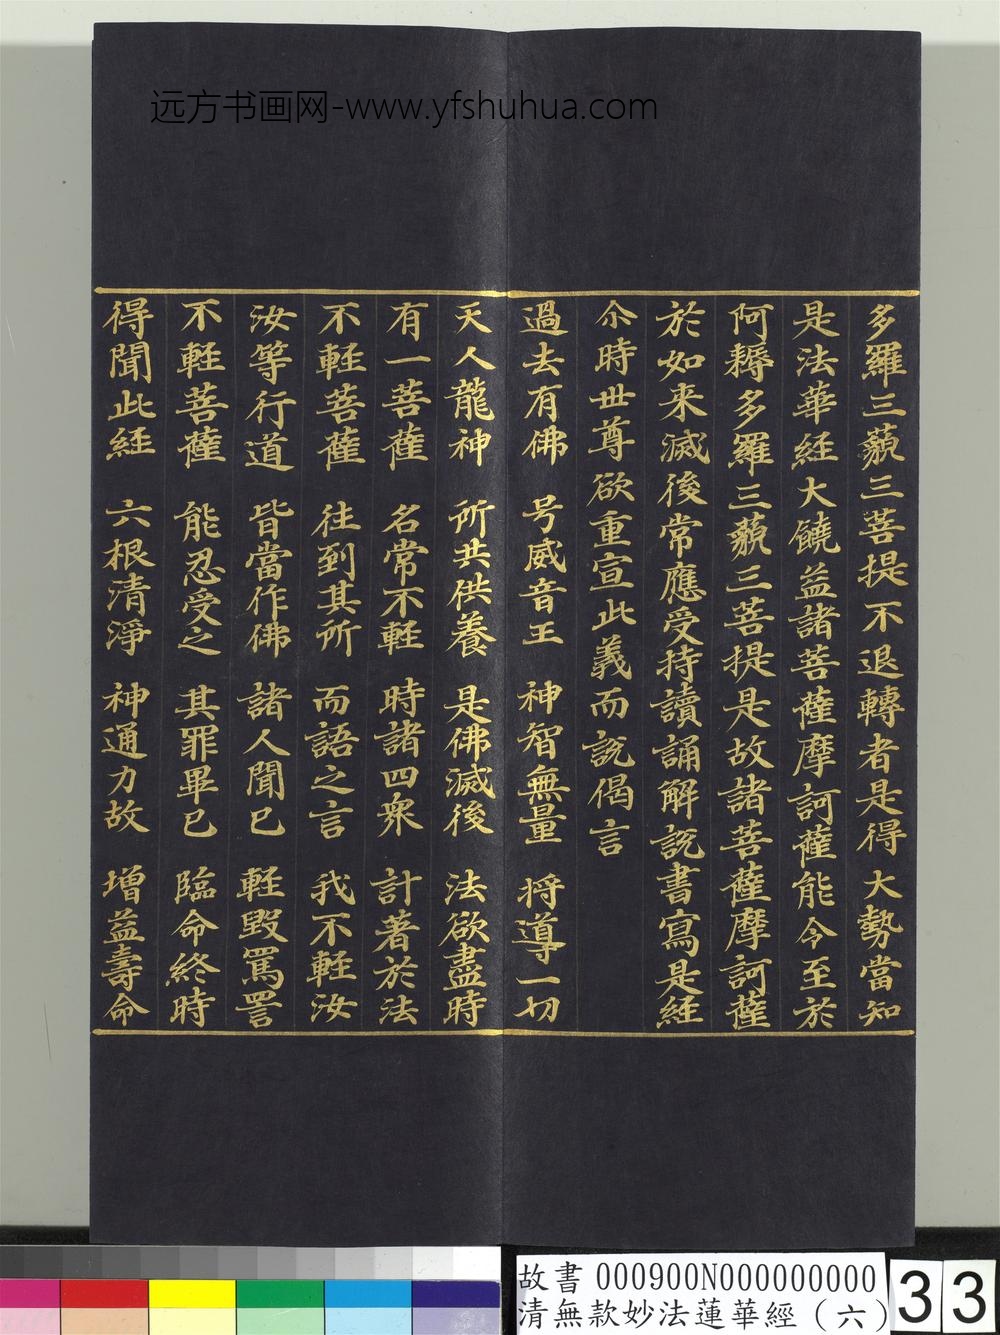 远方书画网-www.yfshuhua.com
多羅三藐三菩提不退轉者是得大勢當知
是法華経大饒益諸菩薩摩訶薩能令至於
阿耨多羅三藐三菩提是故諸菩薩摩訶薩
於如来滅後常應受持讀誦解說書寫是経
尒時世尊欲重宣此義而說偈言
過去有佛 号威音王 神智無量 将導一切
天人龍神 所共供養 是佛滅後 法欲盡時
有一菩薩 名常不軽 時諸四衆 計著於法
不軽菩薩 往到其所 而語之言 我不軽汝
汝等行道 皆當作佛 諸人聞已 軽毀罵詈
不軽菩薩 能忍受之 其罪畢已 臨命終時
得聞此経 六根清淨 神通力故 增益壽命
故書 000900N000000000
清無款妙法蓮華經(六)
33